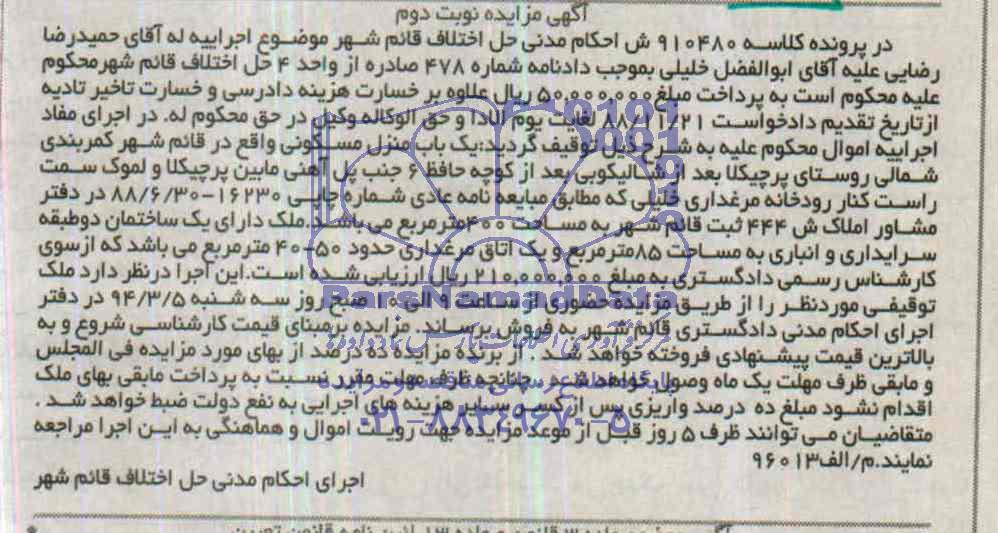 آگهی مزایده نوبت دوم
در پرونده کلاسه ۹۱۰۴۸۰ ش احکام مدنی حل اختلاف قائم شهر موضوع اجراییه له آقای حمیدرضا
رضایی علیه آقای ابوالفضل خلیلی بموجب دادنامه شماره ۴۷۸ صادره از واحد ۴ حل اختلاف قائم شهرمحکوم
علیه محکوم است به پرداخت مبلغ ۵۰,۰۰۰,۰۰۰ ریال علاوه بر خسارت هزینه دادرسی و خسارت تاخیر تادیه
ازتاریخ تقدیم دادخواست ۸۸/۱۱/۲۱ لغایت یوم الادا و حق الوکاله وکیل در حق محکوم له. در اجرای مفاد
اجراییه اموال محکوم علیه به شرح ذیل توقیف گردید:یک باب منزل مسکونی واقع در قائم شهر کمربندی
شمالی روستای پرچیکلا بعد از شالیکوبی بعد از کوچه حافظ ۶ جنب پل آهنی مابین پرچیکلا و لموک سمت
راست کنار رودخانه مرغداری خلیلی که مطابق مبایعه نامه عادی شماره چاپی ۱۶۲۳۰-۸۸/۶/۳۰ در دفتر
مشاور املاک ش ۴۴۴ ثبت قائم شهر به مساحت ۴۰۰مترمربع می باشد.ملک دارای یک ساختمان دوطبقه
سرایداری و انباری به مساحت ۸۵مترمربع و یک اتاق مرغداری حدود ۵۰-۴۰ مترمربع می باشد که ازسوی
کارشناس رسمی دادگستری به مبلغ ۲۱۰,۰۰۰,۰۰۰ ریال ارزیابی شده است.این اجرا درنظر دارد ملک
توقیفی موردنظر را از طریق مزایده حضوری از ساعت ۹ الی ۱۰ صبح روز سه شنبه ۹۴/۳/۵ در دفتر
اجرای احکام مدنی دادگستری قائم شهر به فروش برساند. مزایده برمبنای قیمت کارشناسی شروع و به
بالاترین قیمت پیشنهادی فروخته خواهد شد . از برنده مزایده ده درصد از بهای مورد مزایده فی المجلس
و مابقی ظرف مهلت یک ماه وصول خواهد شد . چنانچه ظرف مهلت مقرر نسبت به پرداخت مابقی بهای ملک
اقدام نشود مبلغ ده درصد واریزی پس از کسر سایر هزینه های اجرایی به نفع دولت ضبط خواهد شد .
متقاضیان می توانند ظرف ۵ روز قبل از موعد مزایده جهت رویت اموال و هماهنگی به این اجرا مراجعه
نمایند.م/الف۹۶۰۱۳
اجرای احکام مدنی حل اختلاف قائم شهر
ParsNamadData
۰۲۱-۸۸۳۴۹۶۷۰-۵